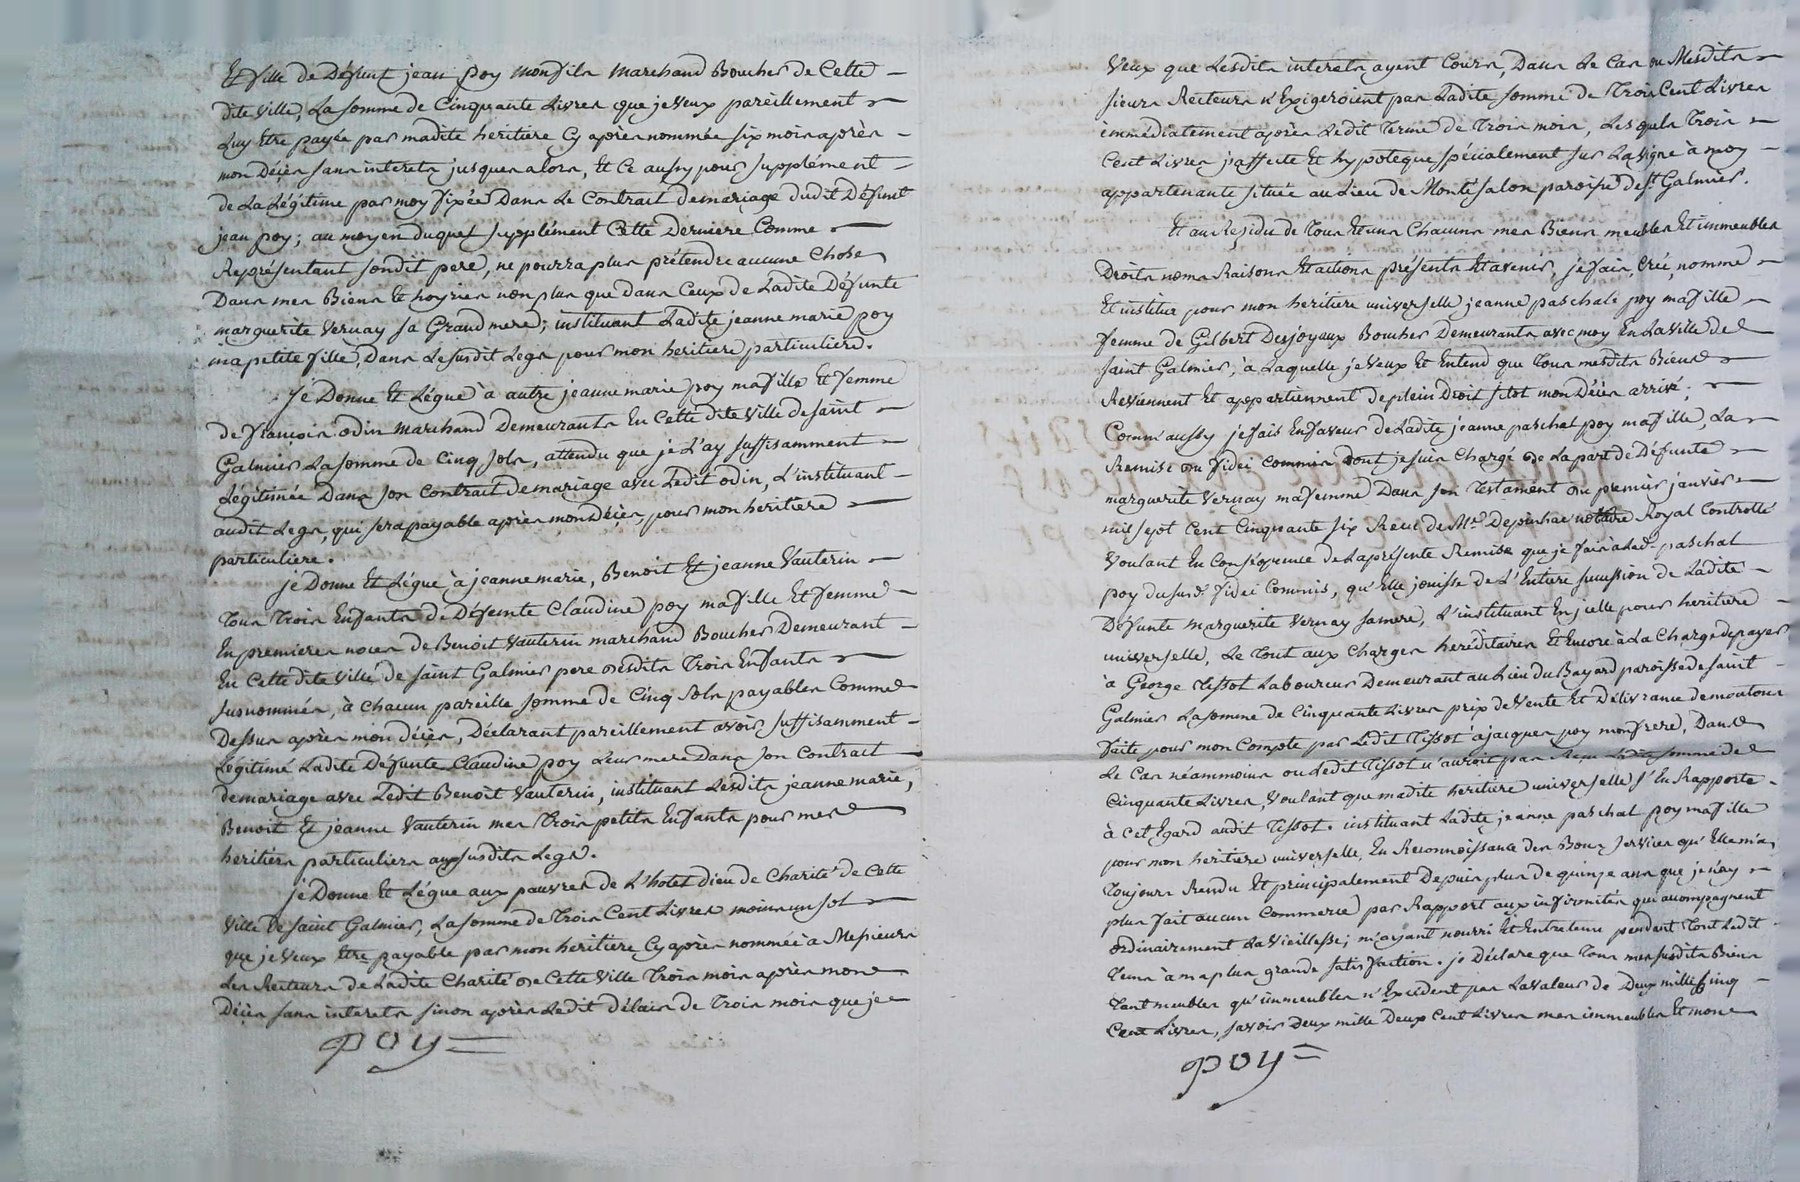 Et fille de Défunt jean poy mon fils marchand Boucher de Cette
dite ville, La somme de Cinquante Livres que je veux pareillement
Luy Etre payée par madite heritiere Cy après nommée six mois après
mon Décès sans interets jusques alors, Et Ce aussy pour supplément
de La Légitime par moy fixée Dans Le Contrait de mariage dudit Défunt
jean poy; au moyen duquel supplément Cette Derniere Comme
Représentant sondit pere, ne pourra plus prétendre aucune Chose
Dans mes Biens Et hoyries non plus que dans Ceux de Ladite Défunte
marguerite Vernay sa Grand mere; instituant Ladite jeanne marie poy
ma petite fille, Dans Le susdit Legs pour mon heritiere particuliere.
Je Donne Et Légue à autre jeanne marie poy ma fille Et femme
de françois odin marchand Demeurants En Cette dite Ville de saint
Galmier La somme de Cinq sols, attendu que je L'ay suffisamment
Légitimée Dans son Contrait de mariage avec Ledit odin, L'instituant
audit Legs, qui sera payable après mon Décès, pour mon heritiere
particuliere.
je Donne Et Légue à jeanne marie, Benoit Et jeanne Vauterin
Tous Trois Enfants de Défunte Claudine poy ma fille Et femme
En premieres noces de Benoit Vauterin marchand Boucher Demeurant
En Cette dite Ville de saint Galmier pere desdits Trois Enfants
susnommés, à chacun pareille somme de Cinq sols payables Comme
Dessus après mon décès, Déclarant pareillement avoir suffisamment
Légitimé Ladite Défunte Claudine poy Leur mere Dans son Contrait
de mariage avec Ledit Benoit Vauterin, instituant Lesdits jeanne marie,
Benoit Et jeanne Vauterin mes Trois petits Enfants pour mes
heritiers particuliers auxsusdits Legs.
je Donne Et Légue aux pauvres de L'hotel dieu de Charité de Cette
Ville de saint Galmier, La somme de Trois Cent Livres moins un sol
que je veux Etre payable par mon heritiere Cy après nommée à Messieurs
Les Recteurs de Ladite Charité de Cette Ville Trois mois après mon
Décès sans interets sinon après Ledit délais de Trois mois que je
poy
Veux que Lesdits interets ayent Cours, Dans Le Cas ou Mesdits
sieurs Recteurs n'Exigeroient pas Ladite somme de Trois Cent Livres
immédiatement après Ledit Terme de Trois mois, Les quels Trois
Cent Livres j'affecte Et hypoteque spécialement sur La vigne à moy
appartenante située au Lieu de Montésalon paroisse de st Galmier.
Et au Résidu de Tous Et uns Chacuns mes Biens meubles Et immeubles
Droits noms Raisons Et actions présents Et avenir, je fais, Crée, nomme
Et institue pour mon heritiere universelle jeanne paschale poy ma fille
femme de Gilbert Desjoyaux Boucher Demeurants avec moy En La ville de
saint Galmier, à Laquelle je Veux Et Entend que Tous mesdits Biens
Reviennent Et appartiennent de plein Droit sitot mon Décès arrivé;
Comm'aussy je fais En faveur de Ladite jeanne paschal poy ma fille, La
Remise du fidei Commis dont je suis Chargé de La part de Défunte
marguerite Vernay ma femme Dans son Testament du premier janvier
mil sept Cent Cinquante six Recu de Me Depoinhac notaire Royal Controllé
Voulant En Conséquence de La présente Remise que je fais à Lad. paschal
poy du susd. fidei Commis, qu'Elle jouisse de L'Entiere succession de Ladite
Défunte marguerite Vernay sa mere, L'instituant En jcelle pour heritiere
universelle, Le Tout aux Charges heréditaires Et Encore à La Charge de payer
à George Tissot Laboureur Demeurant au Lieu du Bayard paroisse de saint
Galmier La somme de Cinquante Livres prix de Vente Et Délivrance de moutons
faite pour mon Compte par Ledit Tissot à jacques poy mon frere, Dans
Le Cas néammoins ou Ledit Tissot n'auroit pas Reçu Ladite somme de
Cinquante Livres, Voulant que madite heritiere universelle s'En Rapporte
à Cet Egard audit Tissot. instituant Ladite jeanne paschal poy ma fille
pour mon heritiere universelle, En Reconnoissance des Bons services qu'Elle m'a
Toujours Rendu Et principalement Depuis plus de quinze ans que je n'ay
plus fait aucun Commerce par Rapport aux infirmités qui accompagnent
ordinairement La Vieillesse; m'ayant nourri Et Entretenu pendant Tout Ledit
Tems à ma plus grande satisfaction. je Déclare que Tous mes susdits Biens
Tant meubles qu'immeubles n'Excédent pas La valeur de Deux mille Cinq
Cent Livres, savoir Deux mille Deux Cent Livres mes immeubles Et mon
poy